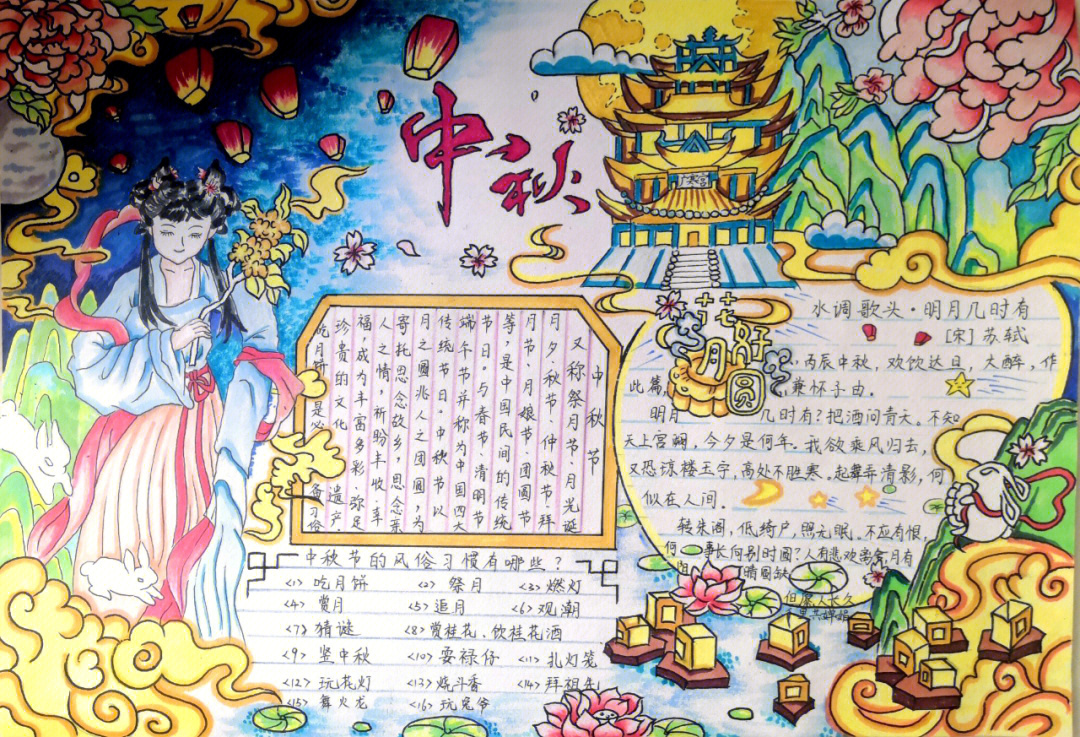 中秋
广寒宫
中秋节
又称祭月节、月光诞
月夕、秋节、仲秋节、拜
月节、月娘节、团圆节
等,是中国民间的传统
节日。与春节、清明节
端午节并称为中国四大
传统节日。中秋节以
月之圆兆人之团圆,为
寄托思念故乡,思念亲
人之情,祈盼丰收、幸
福,成为丰富多彩、弥足
珍贵的文化遗产
吃月饼是必备习俗
花好月圆
水调歌头·明月几时有
[宋]苏轼
丙辰中秋,欢饮达旦,大醉,作
此篇,兼怀子由.
明月几时有?把酒问青天。不知
天上宫阙,今夕是何年.我欲乘风归去,
又恐琼楼玉宇,高处不胜寒,起舞弄清影,何
似在人间.
转朱阁,低绮户,照无眠.不应有恨,
何事长向别时圆?人有悲欢离合,月有
阴晴圆缺
但愿人长久
千里共婵娟
中秋节的风俗习惯有哪些?
<1> 吃月饼 <2> 祭月 <3> 燃灯
<4> 赏月 <5> 追月 <6> 观潮
<7> 猜谜 <8> 赏桂花、饮桂花酒
<9> 竖中秋 <10> 耍禄仔 <11> 扎灯笼
<12> 玩花灯 <13> 烧斗香 <14> 拜祖先
<15> 舞火龙 <16> 玩兔爷